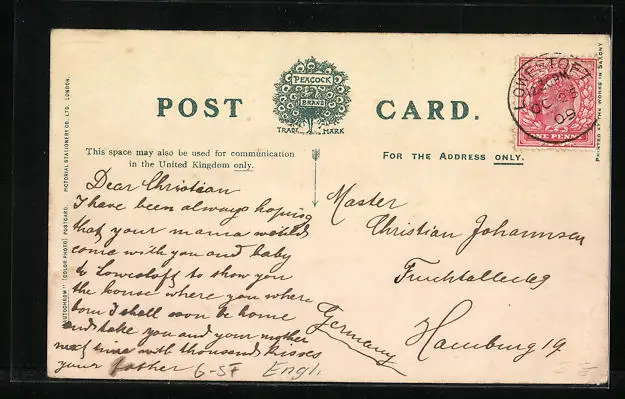 POST CARD.
PEACOCK
BRAND
TRADE MARK
This space may also be used for communication
in the United Kingdom only.
FOR THE ADDRESS ONLY.
"AUTOCHROM" (COLOR PHOTO) POSTCARD. PICTORIAL STATIONERY CO. LTD. LONDON.
PRINTED AT THE WORKS IN SAXONY
LOWESTOFT
PM
OC
09
ONE PENNY
Dear Christian
I have been always hoping
that your mama would
come with you and baby
to Lowestoft to show you
the house where you where
born I shall soon be home
and take you and your mother
with thousand kisses
your father
6-SF Engl.
Master
Christian Johannsen
Fruchtallee
Hamburg 19
Germany